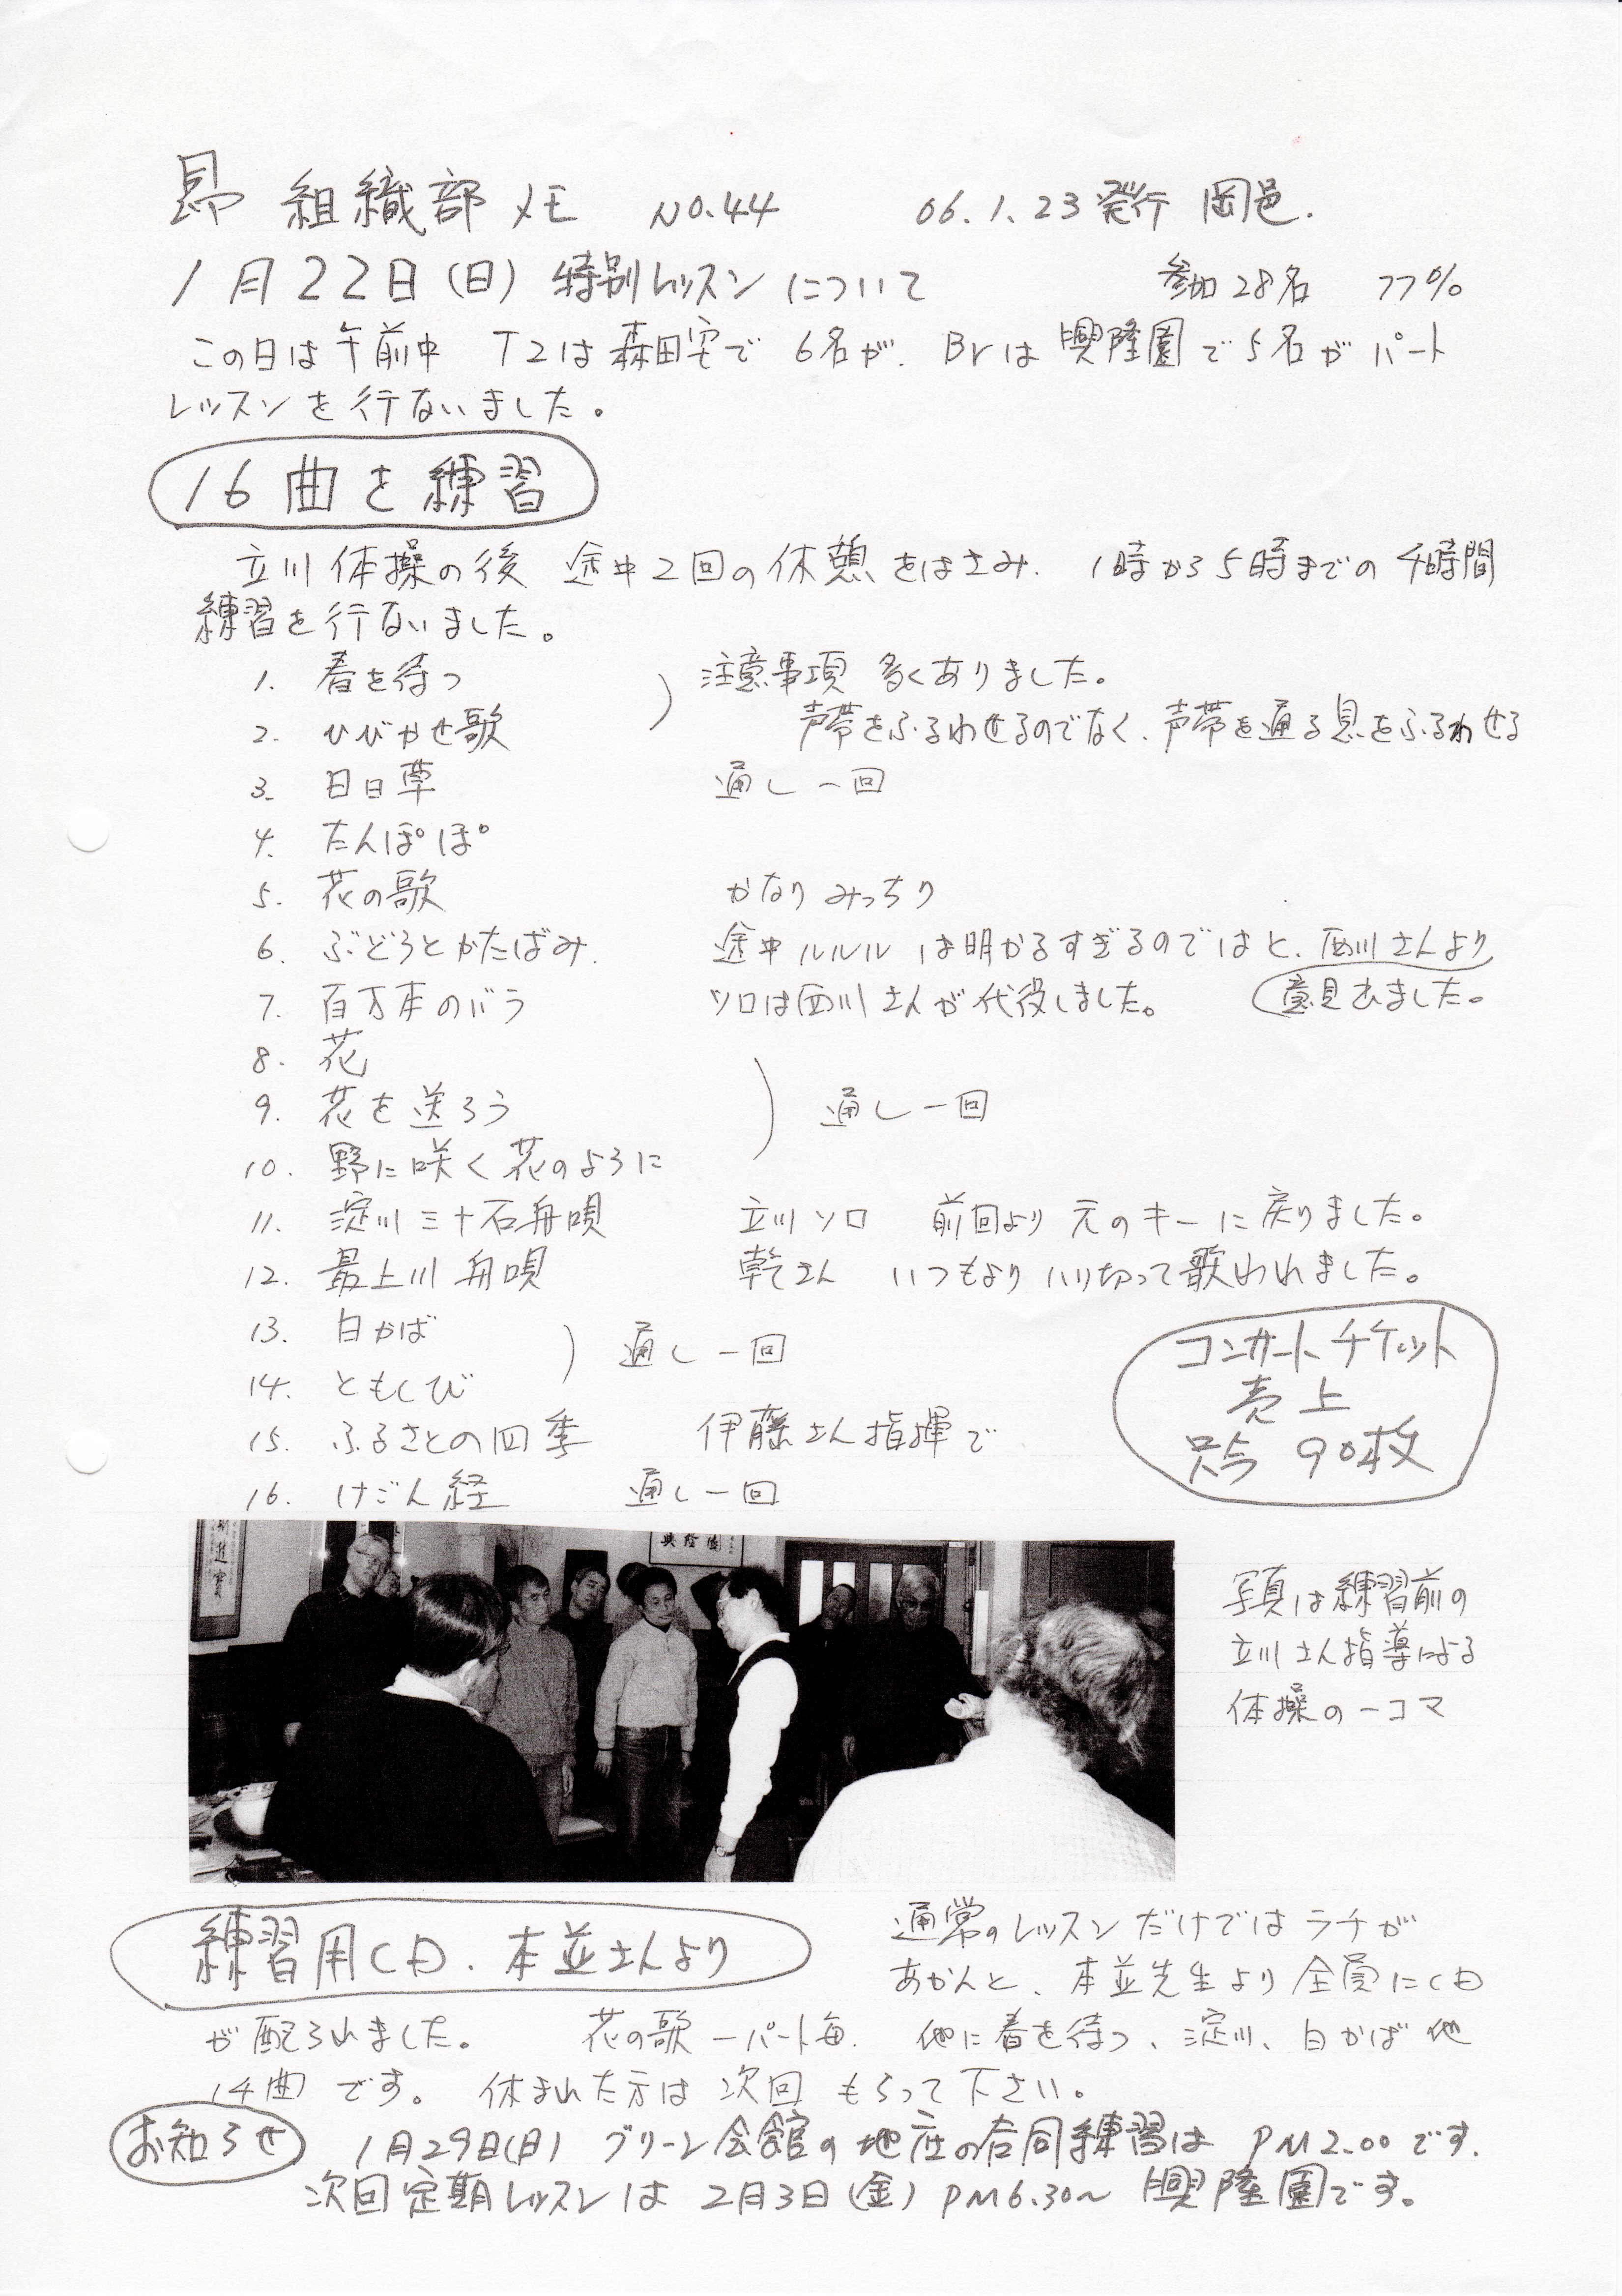 昴 組織部メモ NO.44 06.1.23発行 岡邑.
1月22日(日) 特別レッスンについて 参加28名 77%
この日は午前中 T2は森田宅で 6名が、Brは興隆園で5名がパート
レッスンを行ないました。
16曲を練習
立川体操の後 途中2回の休憩をはさみ、1時から5時までの4時間
練習を行ないました。
1. 春を待つ 注意事項 多くありました。
2. ひびかせ歌 声帯をふるわせるのでなく、声帯を通る息をふるわせる
3. 日日草 通し一回
4. たんぽぽ
5. 花の歌 かなりみっちり
6. ぶどうとかたばみ. 途中ルルルは明かるすぎるのではと、西川さんより
意見出ました。
7. 百万本のバラ ソロは西川さんが代役しました。
8. 花
9. 花を送ろう 通し一回
10. 野に咲く花のように
11. 淀川三十石舟唄 立川ソロ 前回より元のキーに戻りました。
12. 最上川舟唄 乾さん いつもよりハリ切って歌われました。
13. 白かば 通し一回
14. ともしび
15. ふるさとの四季 伊藤さん指揮で
16. けごん経 通し一回
コンサートチケット
売上
只今 90枚
興隆園
写真は練習前の
立川さん指導による
体操の一コマ
練習用CD、本並さんより
通常のレッスンだけではラチが
あかんと、本並先生より全員にCD
が配られました。 花の歌ーパート毎. 他に春を待つ、淀川、白かば他
14曲です。 休まれた方は次回もらって下さい。
お知らせ 1月29日(日) グリーン会館の地庄の合同練習は PM2.00です.
次回定期レッスンは 2月3日(金) PM6.30〜 興隆園です。